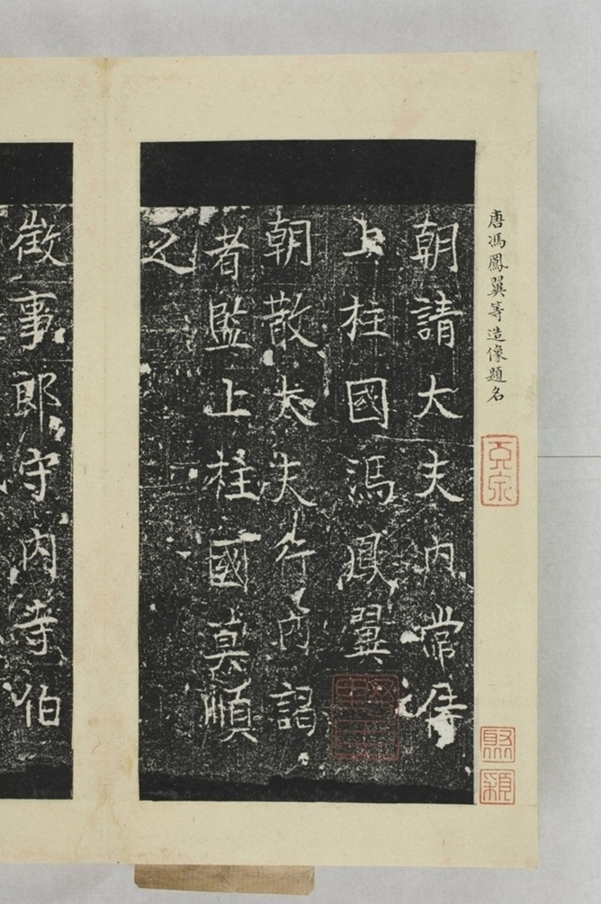 唐馮鳳翼等造像題名
朝請大夫內常侍
上柱國馮鳳翼
朝散大夫行內謁
者監上柱國莫順
之
徵事郎守內寺伯